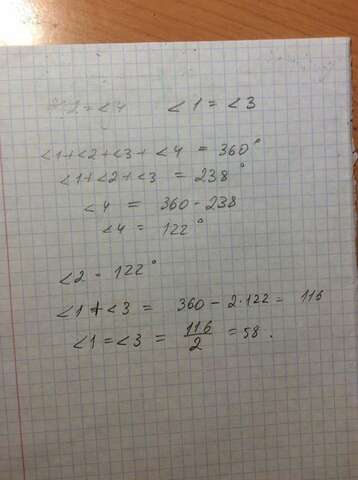 ∠2 = ∠4 ∠1 = ∠3
∠1+∠2+∠3+∠4 = 360°
∠1+∠2+∠3 = 238°
∠4 = 360 - 238
∠4 = 122°
∠2 - 122°
∠1 + ∠3 = 360 - 2·122 = 116
∠1 = ∠3 = 116/2 = 58.